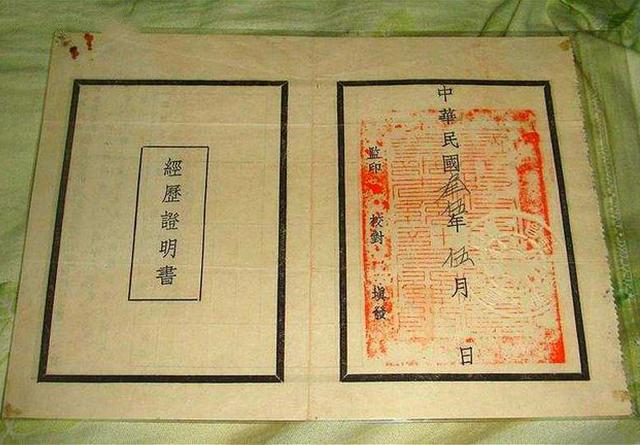 中華民國叁伍年伍月日
監印
校對
填發
經歷證明書